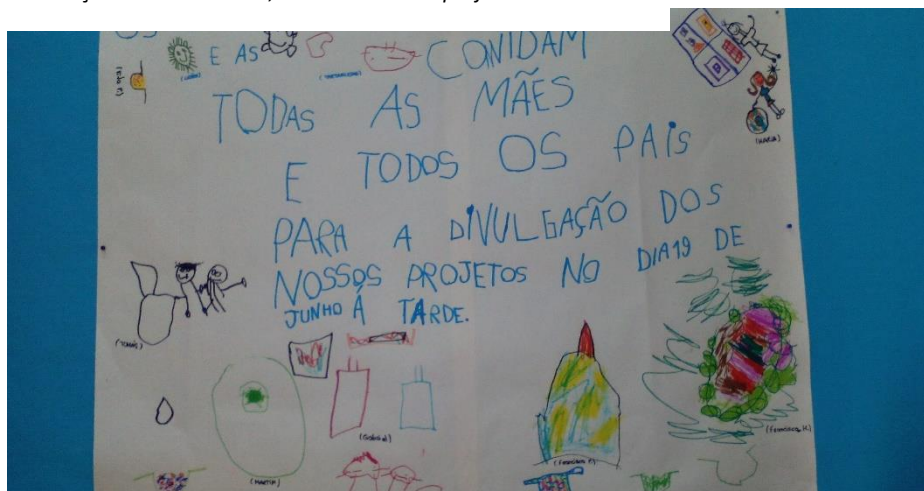 E AS
CONIDAM
TODAS AS MÃES
E TODOS OS PAIS
PARA A DIVULGAÇÃO DOS
NOSSOS PROJETOS NO DIA19 DE
JUNHO Á TARDE.
(MARIA)
(TOMÁS)
(MARTIM)
(Francisco F.)
(Francisco M.)